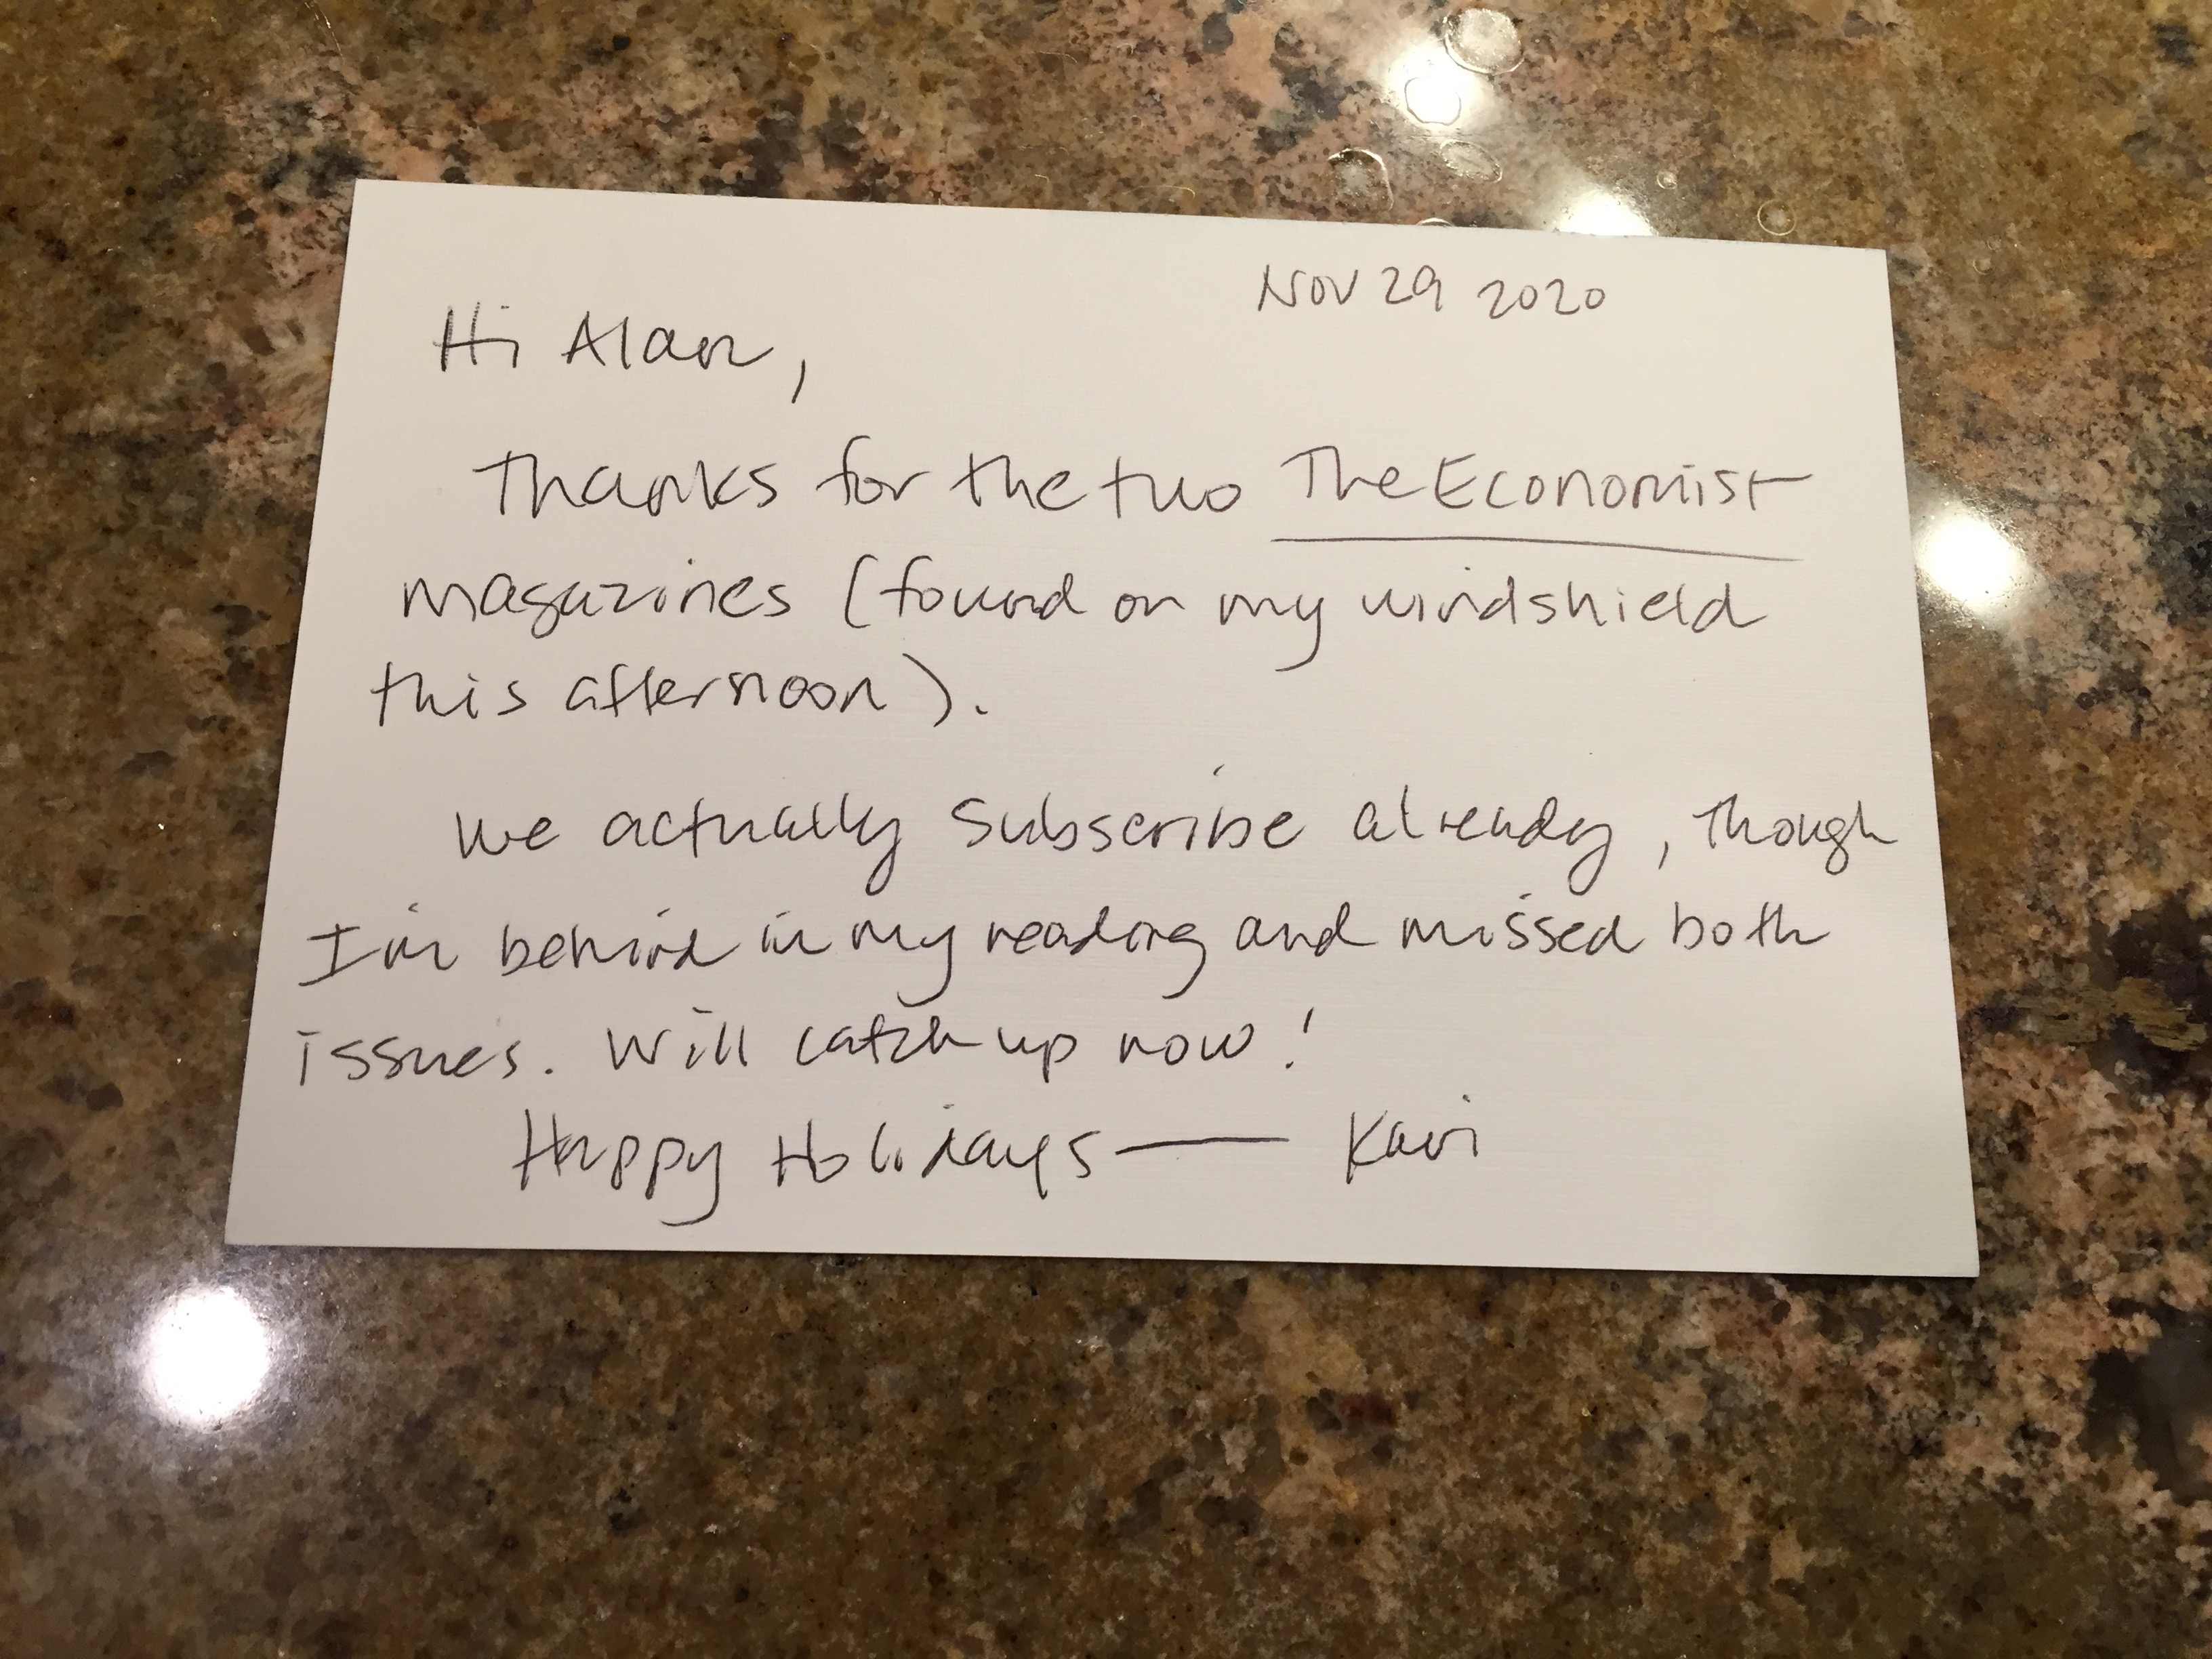 Nov 29 2020
Hi Alan,
Thanks for the two The Economist
magazines (found on my windshield
this afternoon).
We actually subscribe already, though
I'm behind in my reading and missed both
issues. Will catch up now!
Happy Holidays — Kavi